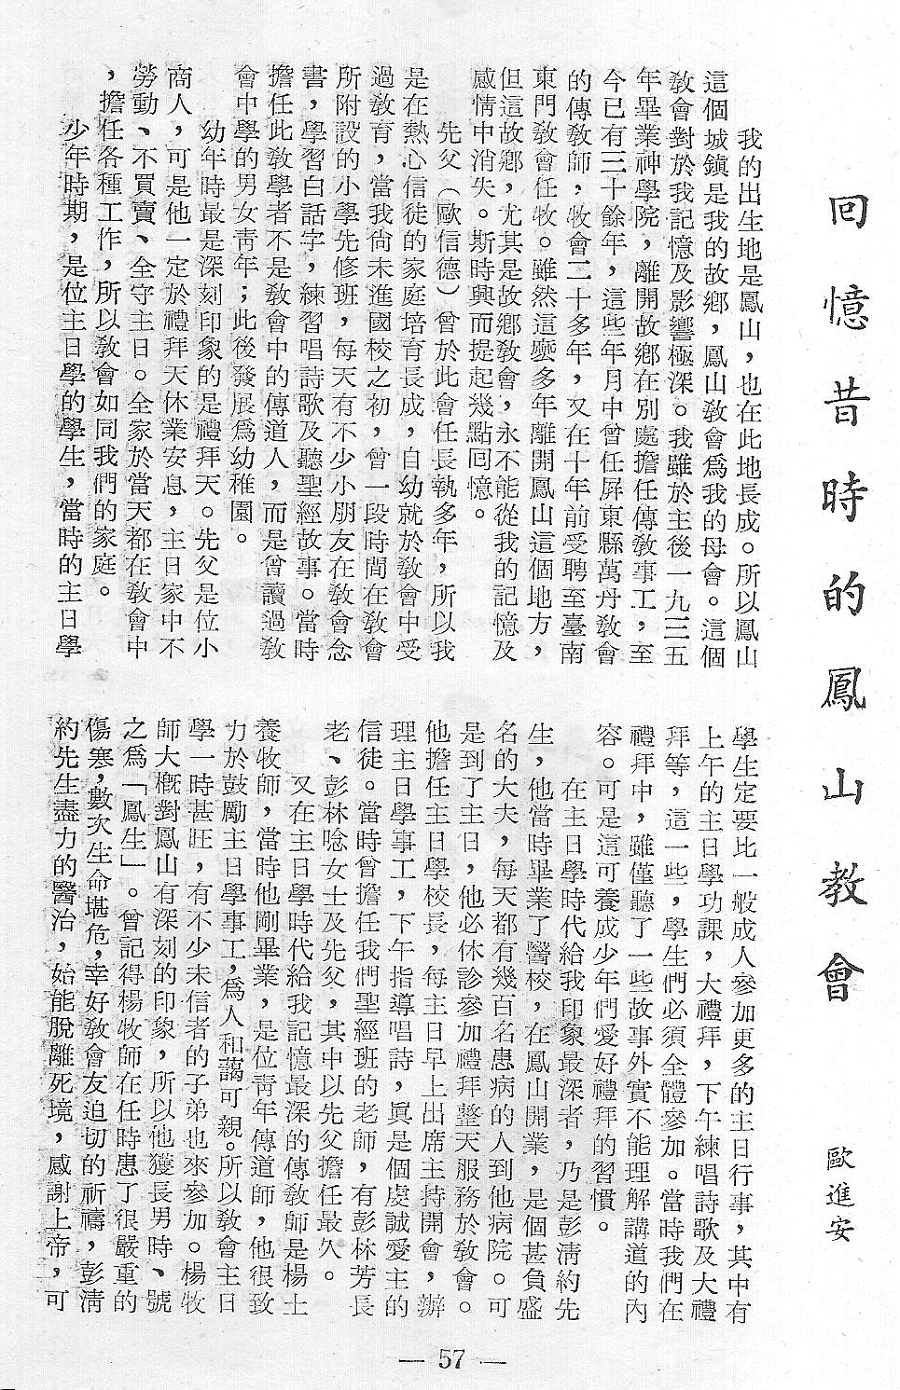 回憶昔時的鳳山教會
歐進安
我的出生地是鳳山，也在此地長成。所以鳳山
這個城鎮是我的故鄉，鳳山教會爲我的母會。這個
教會對於我記憶及影響極深。我雖於主後一九三五
年畢業神學院，離開故鄉在別處擔任傳教事工，至
今已有三十餘年，這些年月中曾任屏東縣萬丹教會
的傳教師，牧會二十多年，又在十年前受聘至臺南
東門教會任牧。雖然這麼多年離開鳳山這個地方，
但這故鄉，尤其是故鄉教會，永不能從我的記憶及
感情中消失。斯時興而提起幾點回憶。
先父（歐信德）曾於此會任長執多年，所以我
是在熱心信徒的家庭培育長成，自幼就於教會中受
過教育，當我尙未進國校之初，曾一段時間在教會
所附設的小學先修班，每天有不少小朋友在教會念
書，學習白話字，練習唱詩歌及聽聖經故事。當時
擔任此教學者不是教會中的傳道人，而是曾讀過教
會中學的男女靑年；此後發展爲幼稚園。
幼年時最是深刻印象的是禮拜天。先父是位小
商人，可是他一定於禮拜天休業安息，主日家中不
勞動、不買賣、全守主日。全家於當天都在教會中
，擔任各種工作，所以教會如同我們的家庭。
少年時期，是位主日學的學生，當時的主日學
學生定要比一般成人參加更多的主日行事，其中有
上午的主日學功課，大禮拜，下午練唱詩歌及大禮
拜等，這一些，學生們必須全體參加。當時我們在
禮拜中，雖僅聽了一些故事外實不能理解講道的內
容。可是這可養成少年們愛好禮拜的習慣。
在主日學時代給我印象最深者，乃是彭淸約先
生，他當時畢業了醫校，在鳳山開業，是個甚負盛
名的大夫，每天都有幾百名患病的人到他病院。可
是到了主日，他必休診參加禮拜整天服務於教會。
他擔任主日學校長，每主日早上出席主持開會，辦
理主日學事工，下午指導唱詩，眞是個虔誠愛主的
信徒。當時曾擔任我們聖經班的老師，有彭林芳長
老、彭林唸女士及先父，其中以先父擔任最久。
又在主日學時代給我記憶最深的傳教師是楊士
養牧師，當時他剛畢業，是位靑年傳道師，他很致
力於鼓勵主日學事工，爲人和藹可親。所以教會主日
學一時甚旺，有不少未信者的子弟也來參加。楊牧
師大槪對鳳山有深刻的印象，所以他獲長男時、號
之爲「鳳生」。曾記得楊牧師在任時患了很嚴重的
傷寒，數次生命堪危，幸好教會友迫切的祈禱，彭淸
約先生盡力的醫治，始能脫離死境，感謝上帝，可
— 57 —